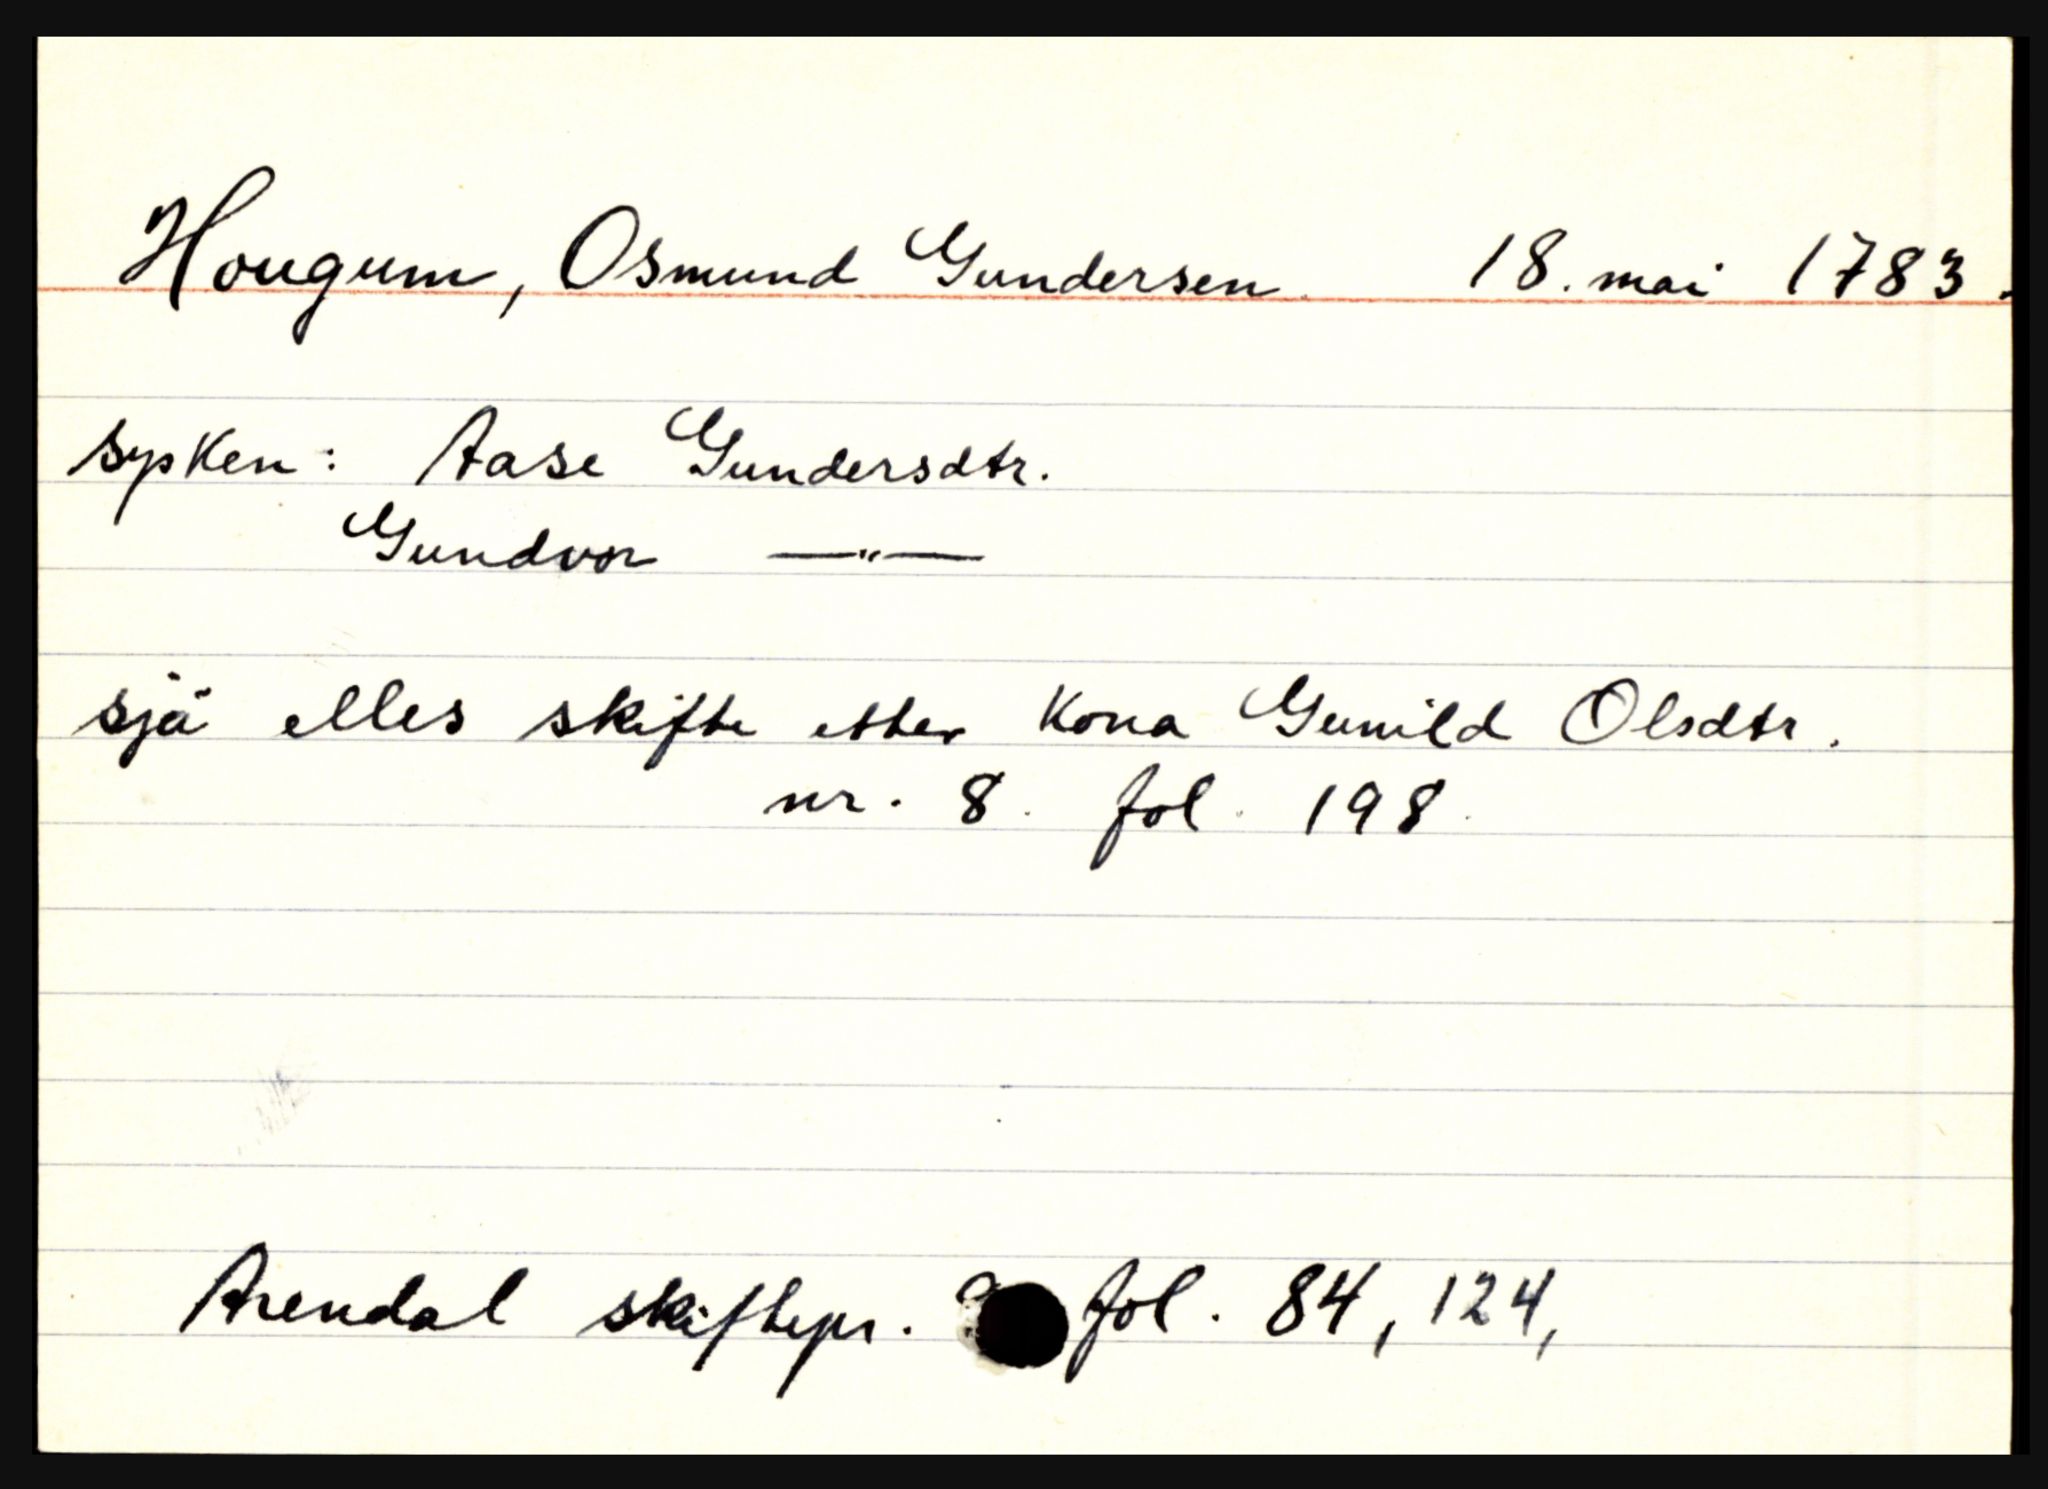 Hougum, Osmund Gundersen. 18. mai 1783.
sysken: Aase Gundersdtr.
Gundvor —"—
sjå elles skifte etter kona Gunild Olsdtr.
nr. 8. fol. 198.
Arendal skiftepr. fol. 84, 124,